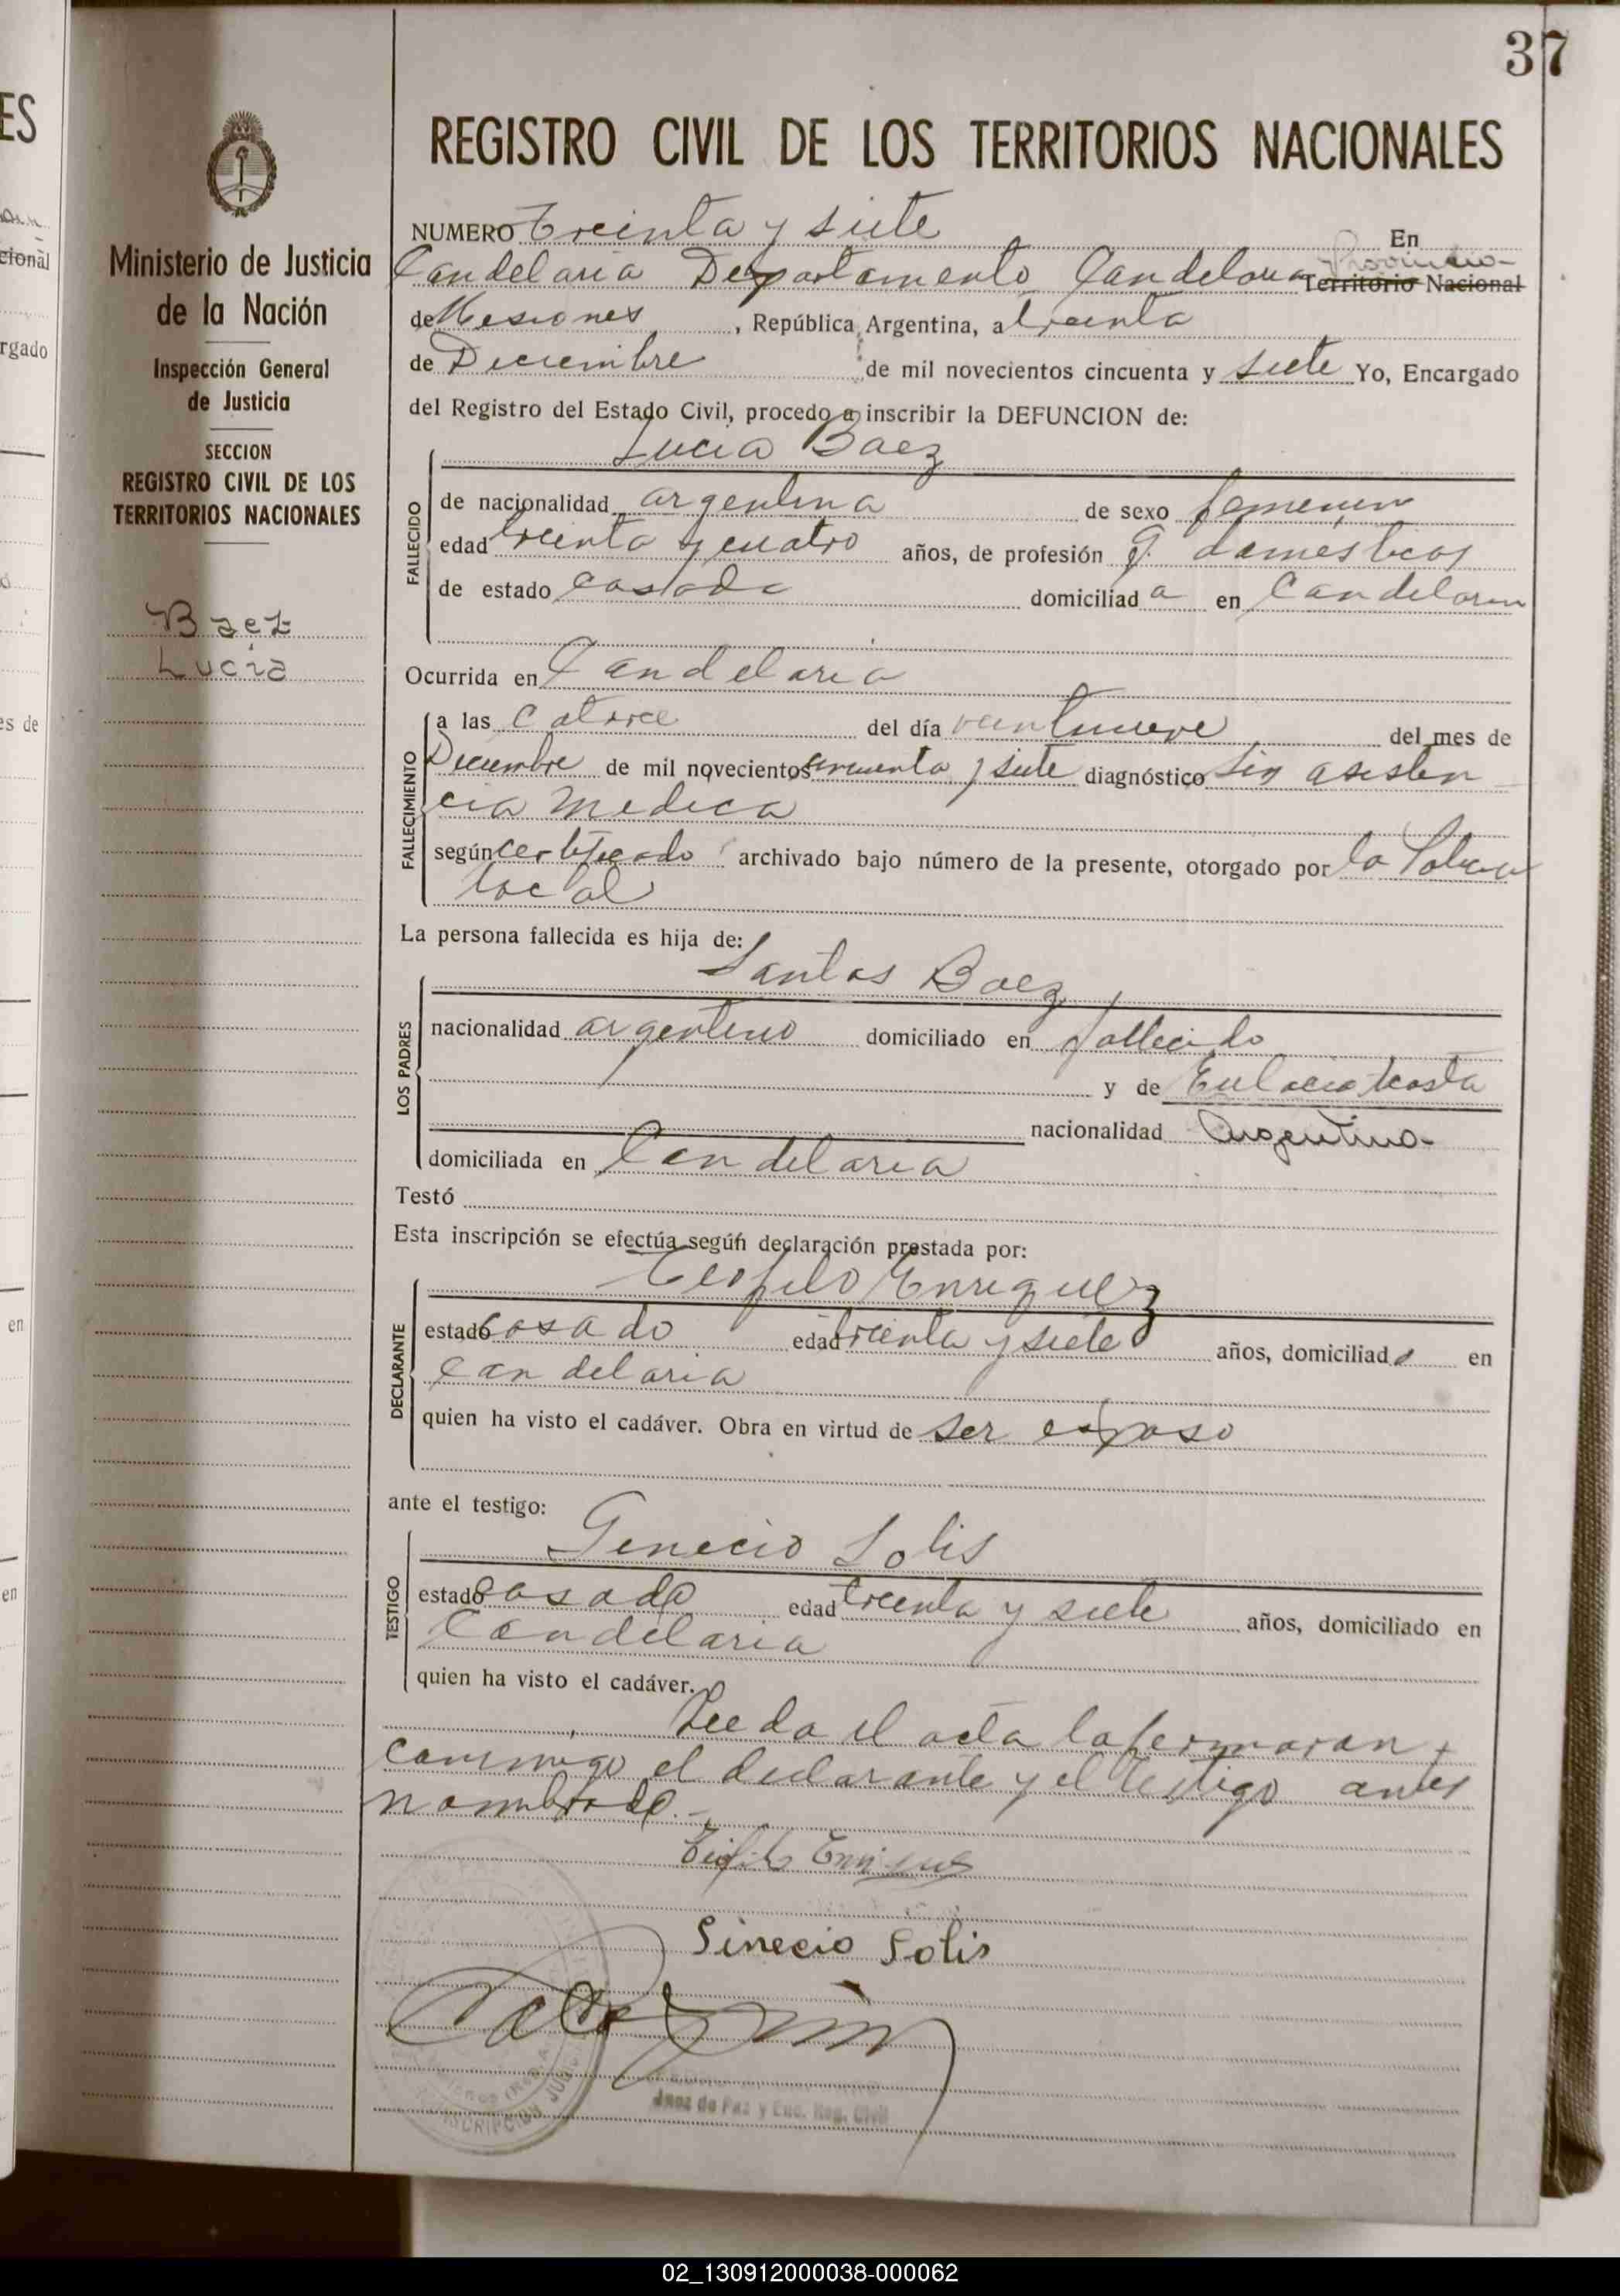 37
REGISTRO CIVIL DE LOS TERRITORIOS NACIONALES
Ministerio de Justicia
de la Nación
Inspección General
de Justicia
SECCION
REGISTRO CIVIL DE LOS
TERRITORIOS NACIONALES
Baez
Lucía
NUMERO Treinta y siete En
Candelaria Departamento Candelaria Provincia Territorio Nacional
de Misiones, República Argentina, a treinta
de Diciembre de mil novecientos cincuenta y siete Yo, Encargado
del Registro del Estado Civil, procedo a inscribir la DEFUNCION de:
Lucia Baez
FALLECIDO
de nacionalidad argentina de sexo femenin
edad treinta y cuatro años, de profesión q. domesticos
de estado casada domiciliada en Candelaria
Ocurrida en Candelaria
FALLECIMIENTO
a las catorce del día veintinueve del mes de
Diciembre de mil novecientos cincuenta y siete diagnóstico sin asisten
cia medica
según certificado archivado bajo número de la presente, otorgado por la Policia
local
La persona fallecida es hija de:
Santos Baez
LOS PADRES
nacionalidad argentino domiciliado en fallecido
y de Eulacia Acosta
nacionalidad Argentina-
domiciliada en Candelaria
Testó
Esta inscripción se efectúa según declaración prestada por:
Teofilo Enriquez
DECLARANTE
estado casado edad treinta y siete años, domiciliado en
Candelaria
quien ha visto el cadáver. Obra en virtud de ser esposo
ante el testigo:
Genecio Solis
TESTIGO
estado casado edad treinta y siete años, domiciliado en
Candelaria
quien ha visto el cadáver.
Leeda el acta la fermaran
conmigo el declarante y el testigo antes
nombrado.-
Sinecio Solis
Juez de Paz y Enc. Reg. Civil
02_130912000038-000062